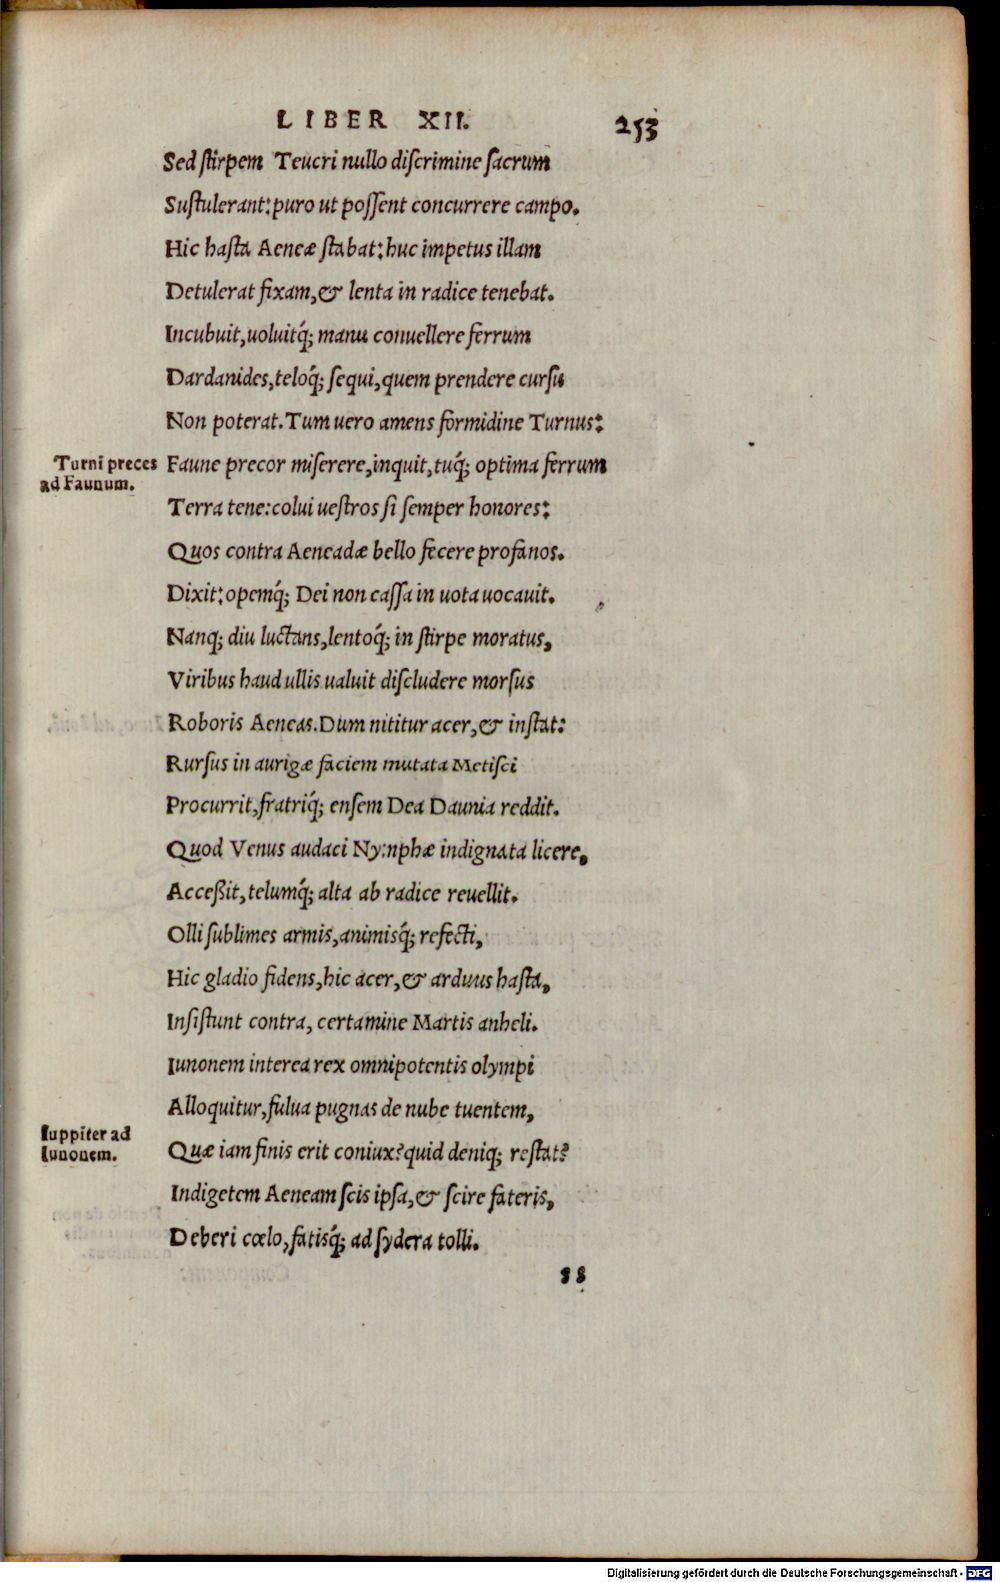 LIBER XII. 253
Sed stirpem Teucri nullo discrimine sacrum
Sustulerant: puro ut possent concurrere campo.
Hic hasta Aeneæ stabat: huc impetus illam
Detulerat fixam, & lenta in radice tenebat.
Incubuit, uoluitq́; manu conuellere ferrum
Dardanides, teloq́; sequi, quem prendere cursu
Non poterat. Tum uero amens formidine Turnus:
Turni preces
ad Faunum.
Faune precor miserere, inquit, tuq́; optima ferrum
Terra tene: colui uestros si semper honores:
Quos contra Aeneadæ bello fecere profanos.
Dixit: opemq́; Dei non cassa in uota uocauit.
Nanq; diu luctans, lentoq́; in stirpe moratus,
Viribus haud ullis ualuit discludere morsus
Roboris Aeneas. Dum nititur acer, & instat:
Rursus in aurigæ faciem mutata Metisci
Procurrit, fratriq́; ensem Dea Daunia reddit.
Quod Venus audaci Nymphæ indignata licere,
Acceßit, telumq́; alta ab radice reuellit.
Olli sublimes armis, animisq́; refecti,
Hic gladio fidens, hic acer, & arduus hasta,
Insistunt contra, certamine Martis anheli.
Iunonem interea rex omnipotentis olympi
Alloquitur, fulua pugnas de nube tuentem,
Iuppiter ad
Iunonem.
Quæ iam finis erit coniux? quid deniq; restat?
Indigetem Aeneam scis ipsa, & scire fateris,
Deberi cœlo, fatisq́; ad sydera tolli.
ss
Digitalisierung gefördert durch die Deutsche Forschungsgemeinschaft - DFG